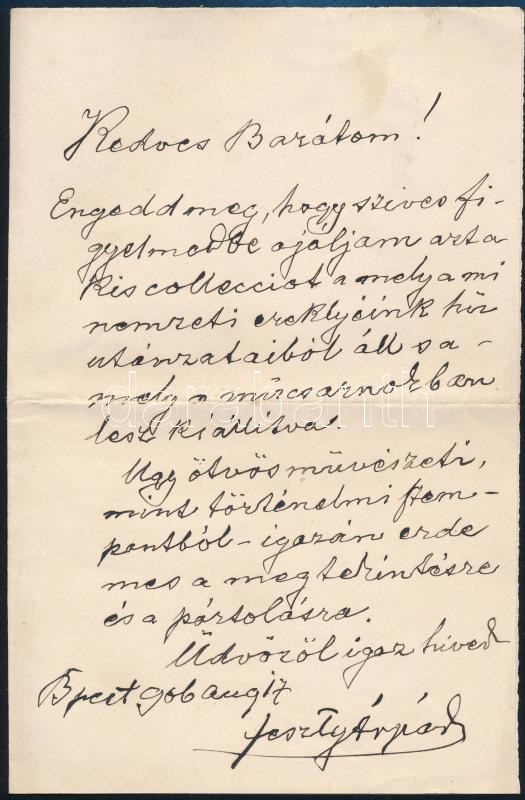 Kedves Barátom!
Engedd meg, hogy szives fi-
gyelmedbe ajáljam azt a
kis collectiot a mely a mi
nemzeti ereklyéink hű
utánzataiból áll s a -
mely a műcsarnokban
lesz kiállítva.
Ugy ötvösművészeti,
mint történelmi szem-
pontból - igazán érde
mes a megtekintésre
és a pártolásra.
Üdvözöl igaz híved
Bpest 906 aug 17
Feszty Árpád
darabanth